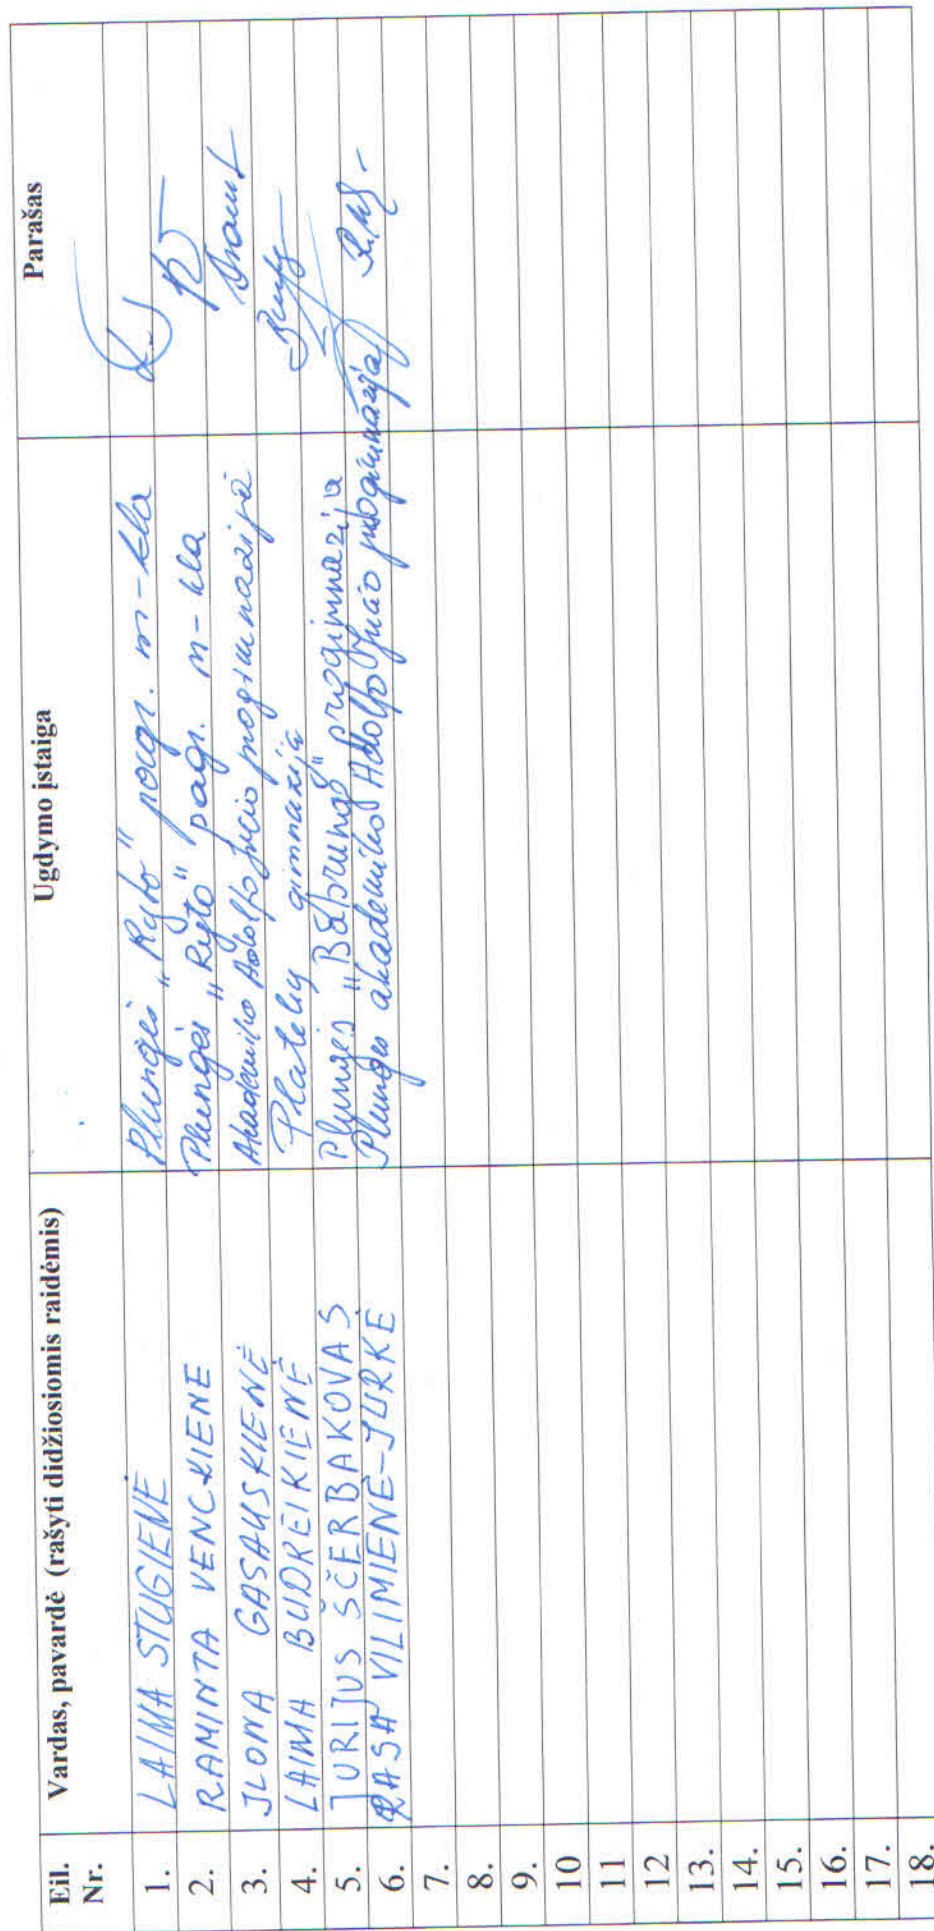 Eil. Nr. Vardas, pavardė (rašyti didžiosiomis raidėmis) Ugdymo įstaiga Parašas
1. LAIMA STUGIENĖ Plungės „Ryto" pagr. m-kla
2. RAMINTA VENCKIENĖ Plungės „Ryto" pagr. m-kla
3. ILONA GASAUSKIENĖ Akademiko Adolfo Jucio progimnazija
4. LAIMA BUDREIKIENĖ Platelių gimnazija
5. JURIJUS ŠČERBAKOVAS Plungės "Babrungo" progimnazija
6. RASA VILIMIENĖ-JURKĖ Plungės akademiko Adolfo Jucio progimnazija
7.
8.
9.
10
11
12
13.
14.
15.
16.
17.
18.